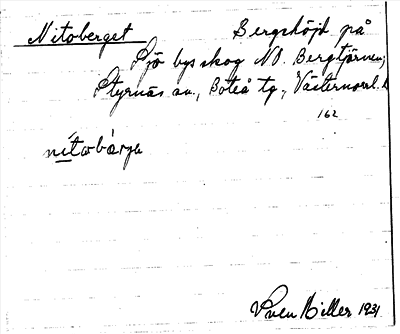 Nitoberget Bergshöjd på
Sjö bys skog NO. Bergtjärnen,
Styrnäs sn., Boteå tg., Västernorrl. l.
162
nitobärje
Sven Miller 1931